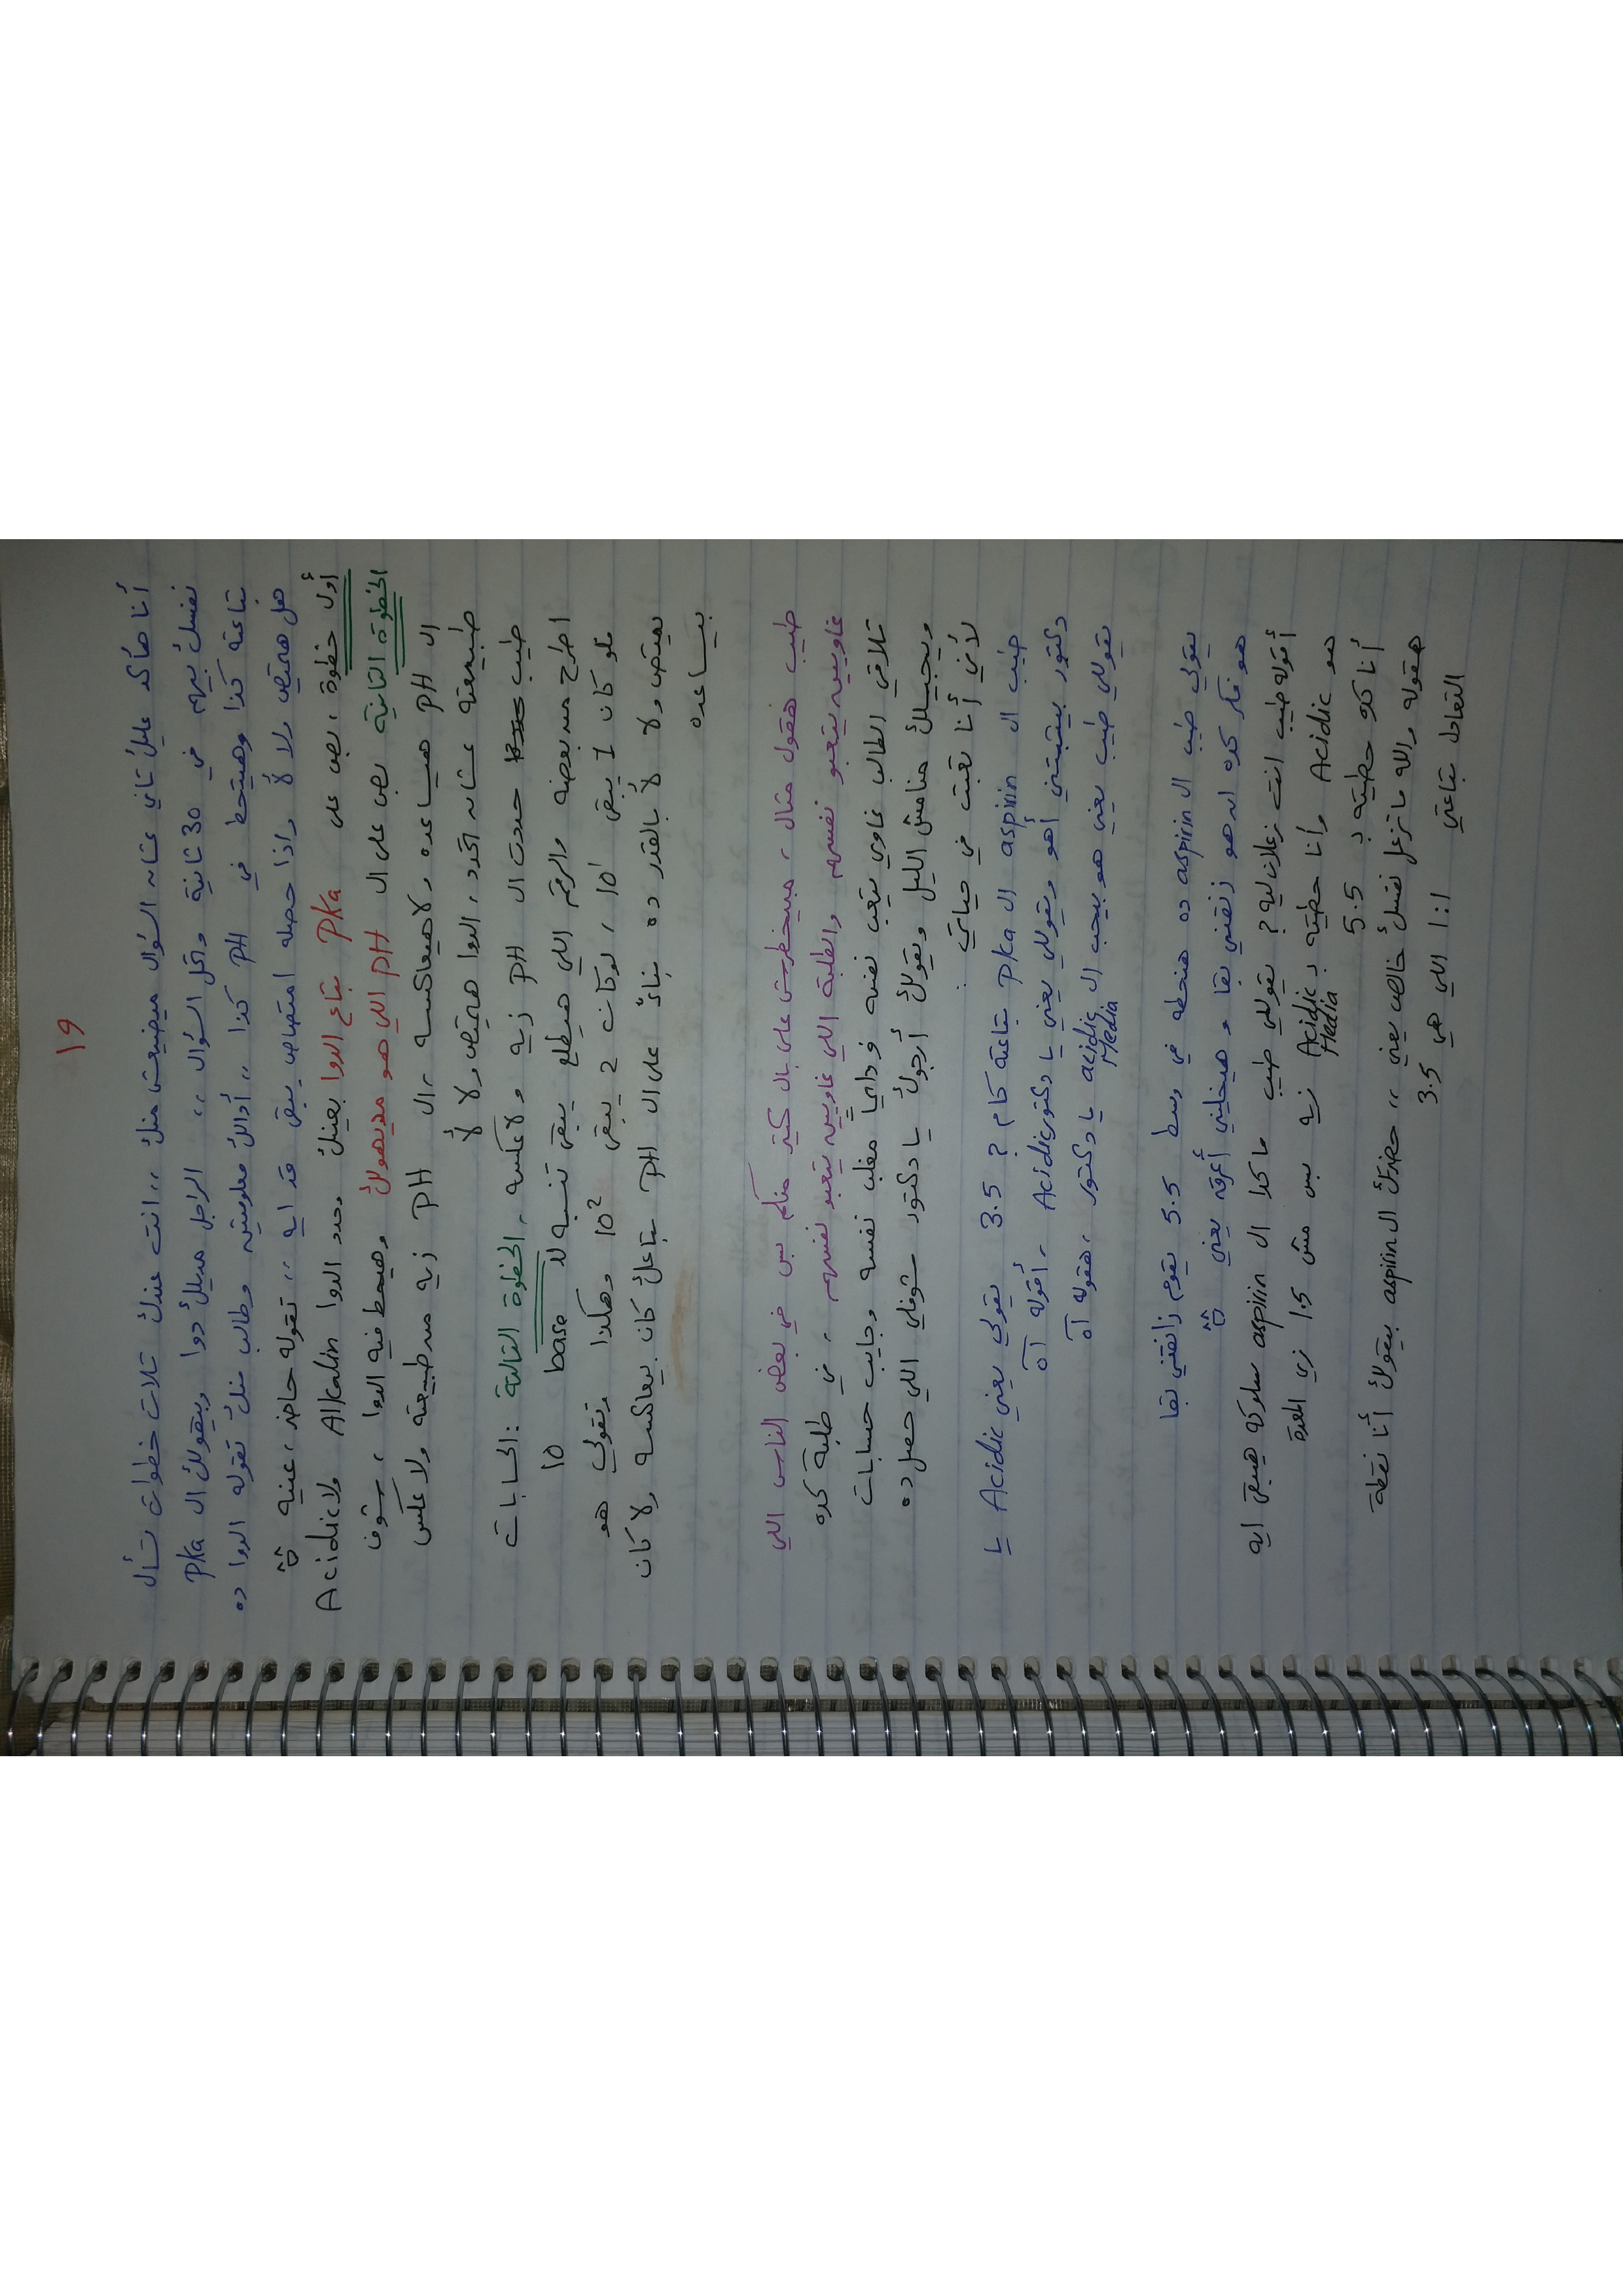 ١٩
أنا هأكد عليك تاني عشان السؤال ميضيعش منك ،، انت عندك تلات خطوات تسأل
نفسك بيهم في 30 ثانية وتحل السؤال ،، الراجل مديلك دوا وبيقولك ال PKa
بتاعته كذا وهيتحط في PH كذا ،، أداللك معلومتين وطالب منك تقوله الدوا ده
هل هيمتص ولا لأ واذا حصله امتصاص يبقى قد ايه ،، تقوله حاضر، عنيه
أول خطوة ، بص على PKa بتاع الدوا بعينك وحدد الدوا Alkalin ولا Acidic
الخطوة التانية بص على ال PH اللي هو مديهولك وهيحط فيه الدوا ، شوف
ال PH هيساعده ولا هيعاكسه ، ال PH زيه من طبيعته ولا عكس
طبيعته عشان تحدد ، الدوا هيمتص ولا لأ
طيب حددت ال PH زيه ولا عكسه ، الخطوة التالتة : الحسابات
اطرح من بعضه والرقم اللي هيطلع يبقى تنسبه لل base 10
فلو كان 1 يبقى 10¹ ، لو كان 2 يبقى 10² وهكذا وتقولي هو
هيمتص ولا لأ بالقدر ده بناءً على ال PH بتاعك كان بيعاكسه ولا كان
بيساعده
طيب هقول مثال ، مبيخطرش على بال كتير منكم بس في بعض الناس اللي
غاويين يتعبو نفسهم والطلبة اللي غاويين يتعبو نفسهم ، في طلبة كده
تلاقي الطالب غاوي يتعب نفسه ودايماً مغلب نفسه وجايب حسابات
ويجيلك منامش الليل ويقولك أرجوك يا دكتور شوفلي اللي حصل ده
لأني أنا تعبت في حياتي
طيب ال aspirin ال PKa بتاعته كام ؟ 3.5 يقولي يعني Acidic يا
دكتور بيتبتني أهو ويقوللي يعني يا دكتور Acidic ، أقوله آه
يقوللي طيب يعني هو بيحب ال acidic Media يا دكتور ، هقوله آه
يقولي طيب ال aspirin ده هنحطه في وسط 5.5 يقوم زانقني بقا
هو فكر كده انه هو زنقني بقا وهيخليني أعرق يعني
أقوله طيب انت زعلان ليه ؟ يقوللي طيب ما كدا ال aspirin سلوكه هيبقى ايه
هو Acidic وأنا حطيته بـ Acidic Media زيه بس مش 1.5 زي المعدة
أنا كده حطيته بـ 5.5
هقوله والله ما تزعل نفسك خالص يعني ،، حضرتك ال aspirin بيقولك أنا نقطة
التعادل بتاعتي 1:1 اللي هي 3.5